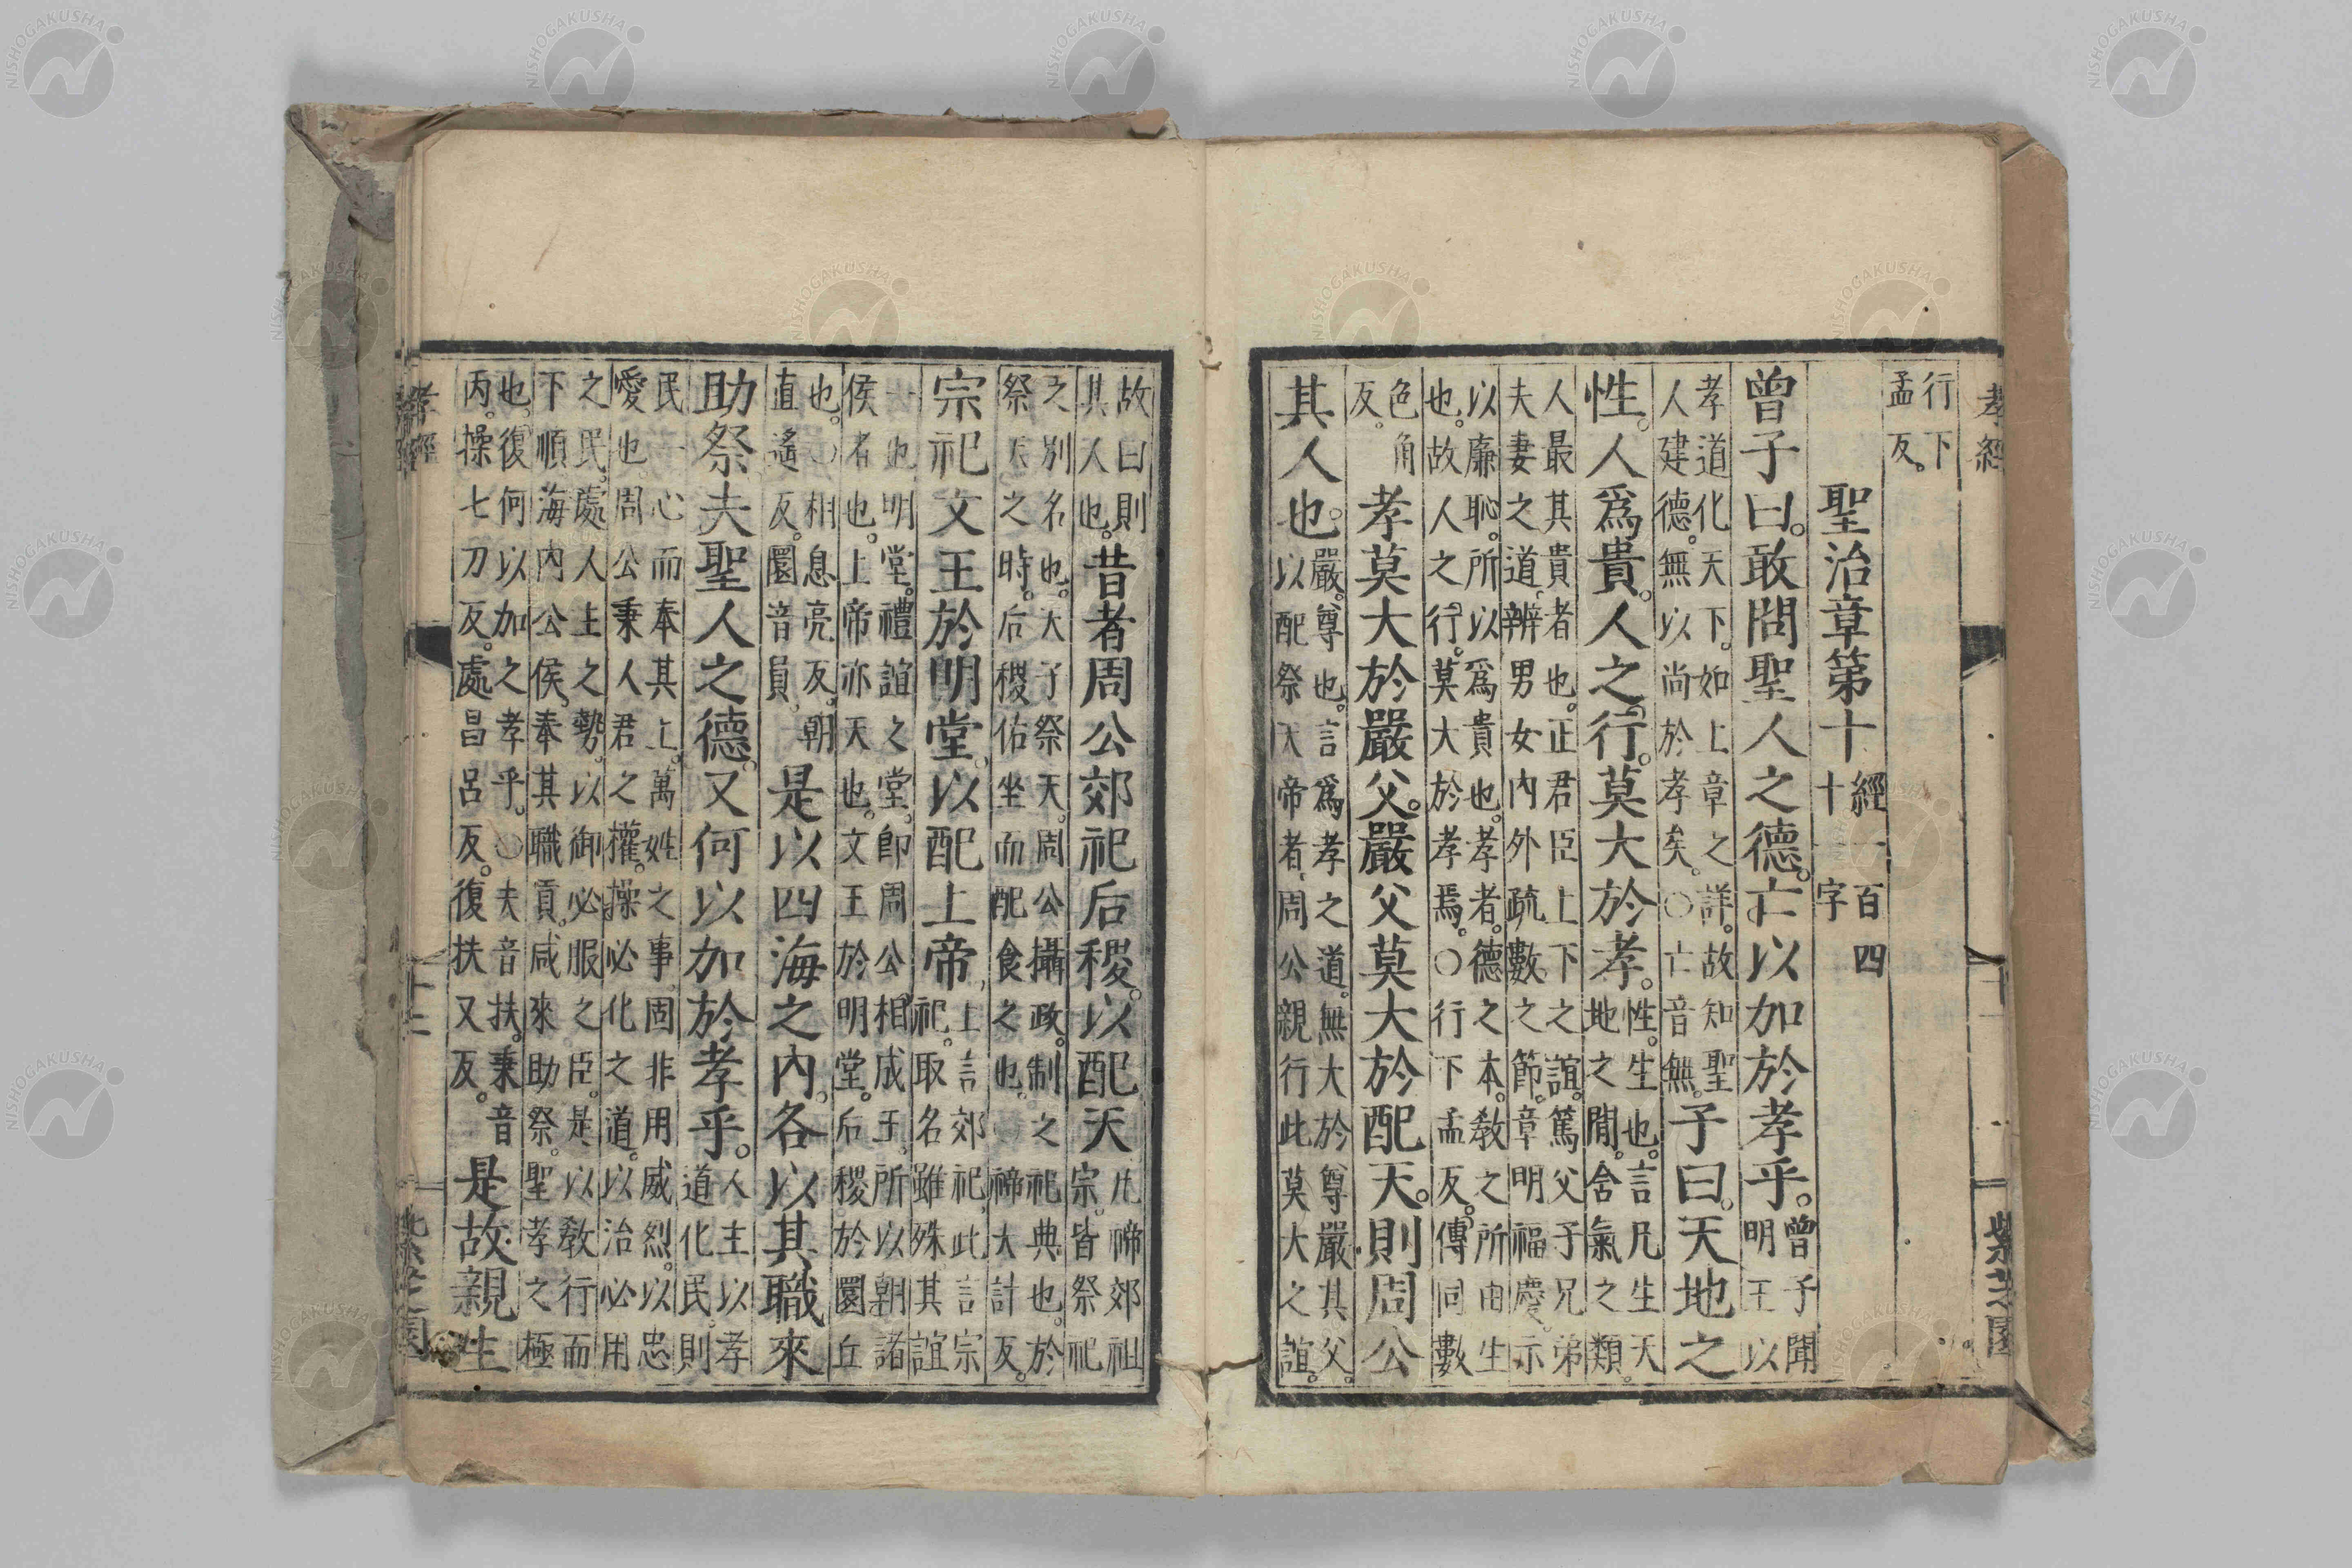 孝經
十一
紫芝園
行下
孟反。
聖治章第十
經一百四
十字
曾子曰。敢問聖人之德。亡以加於孝乎。
曾子聞
明王以
孝道化天下。如上章之詳。故知聖
人建德。無以尚於孝矣。○亡音無。
子曰。天地之
性。人爲貴。人之行。莫大於孝。
性。生也。言凡生天
地之閒。含氣之類。
人最其貴者也。正君臣上下之誼。篤父子兄弟
夫妻之道。辨男女內外疏數之節。章明福慶。示
以廉恥。所以爲貴也。孝者。德之本。敎之所由生
也。故人之行。莫大於孝焉。○行下孟反。傳同數
色角
反。
孝莫大於嚴父。嚴父莫大於配天。則周公
其人也。
嚴。尊也。言爲孝之道。無大於尊嚴其父。
以配祭天帝者。周公親行此莫大之誼。
故曰則
其人也。
昔者周公郊祀后稷。以配天
凡禘郊祖
宗。皆祭祀
之別名也。天子祭天。周公攝政。制之祀典也。於
祭天之時。后稷佑坐而配食之也。○禘大計反。
宗祀文王於明堂。以配上帝。
上言郊祀。此言宗
祀。取名雖殊。其誼
一也。明堂。禮誼之堂。卽周公相成王。所以朝諸
侯者也。上帝亦天也。文王於明堂。后稷於圜丘
也。○相息亮反。朝
直遙反。圜音員。
是以四海之內。各以其職來
助祭夫聖人之德。又何以加於孝乎。
人主以孝
道化民。則
民一心而奉其上。萬姓之事。固非用威烈。以忠
愛也。周公秉人君之權。操必化之道。以治必用
之民。處人上之勢。以御必服之臣。是以敎行而
下順。海內公侯。奉其職貢。咸來助祭。聖孝之極
也。復何以加之孝乎。○夫音扶。秉音
丙。操七刀反。處昌呂反。復扶又反。
是故親生
孝經
十二
紫芝園